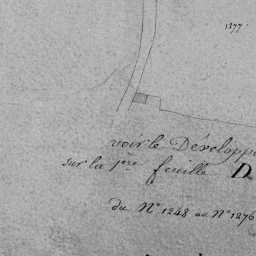 1377.
voir le Développ
sur la 1ère feuille D
du N° 1248 au N° 1276